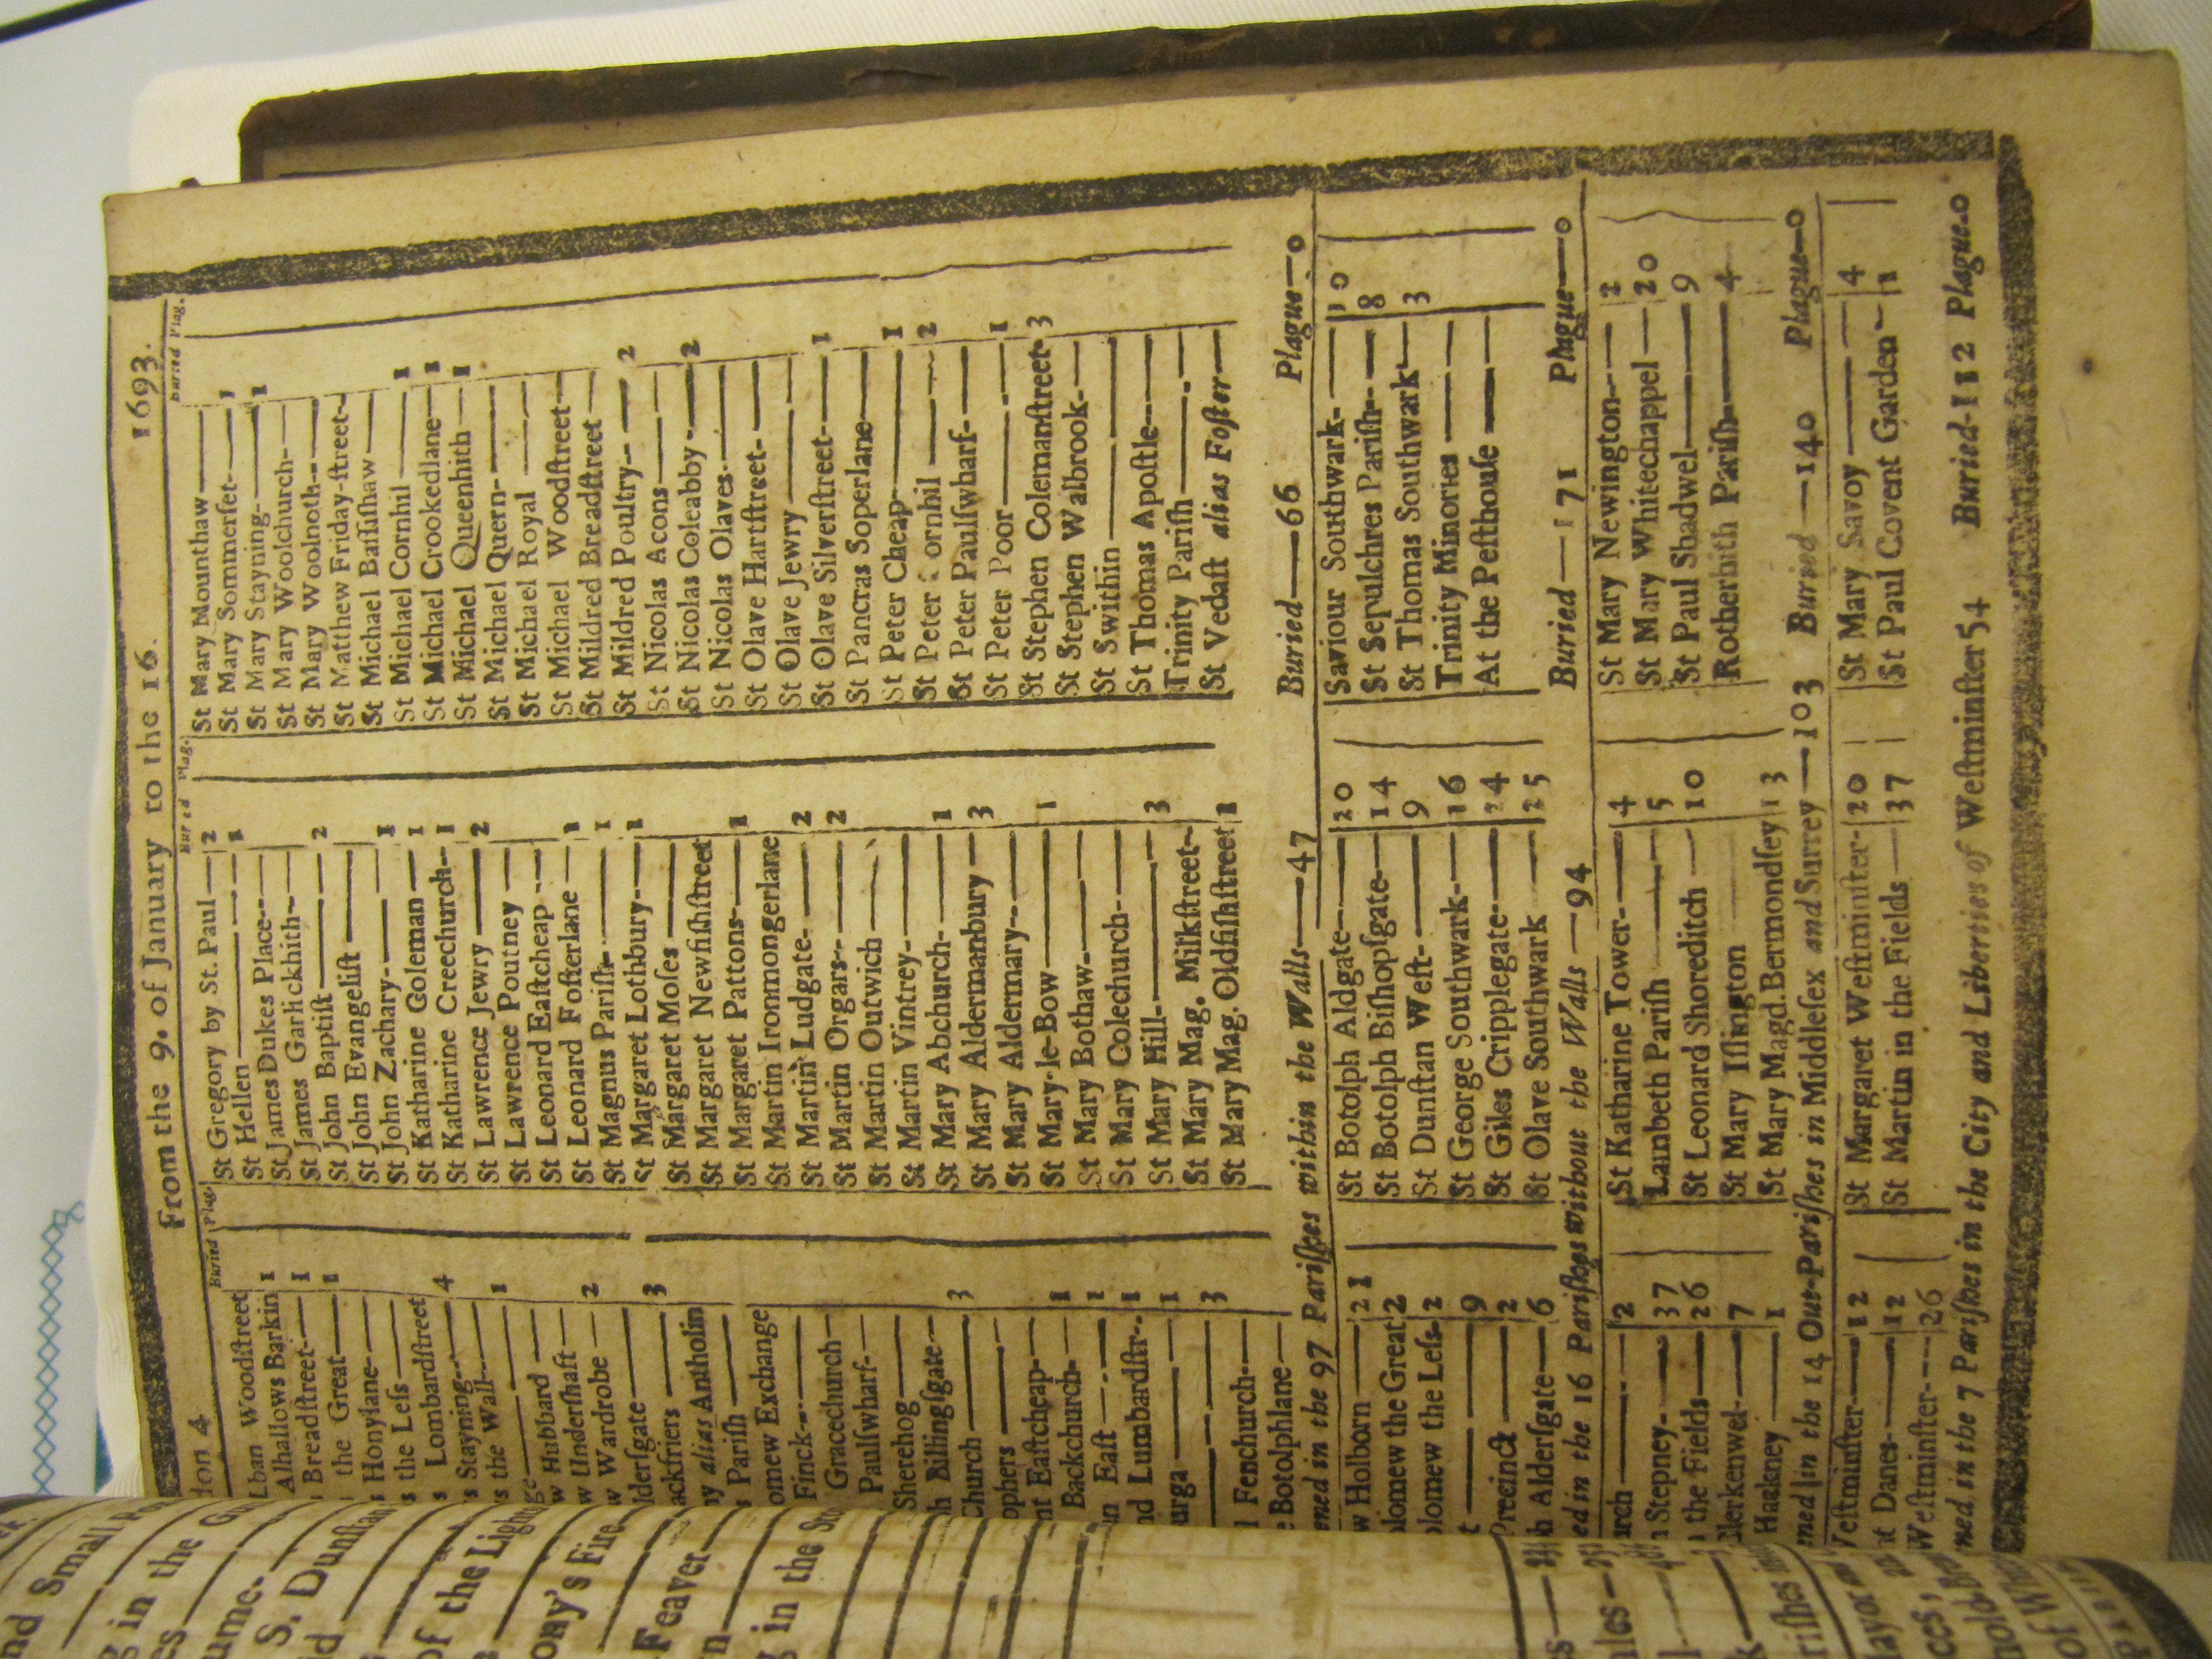 From the 9. of January to the 16. 1693.
Buried Plag.
Woodſtreet
Alhallows Barkin 1
Breadſtreet— 1
the Great— 1
Honylane—
the Leſs—
Lombardſtreet 4
Stayning—
the Wall— 1
Hubbard —
Underſhaft —
Wardrobe — 2
alderſgate —
ackfriers — 3
alias Antholin
Pariſh —
omew Exchange
Finck—
Gracechurch—
Paulſwharf—
Sherehog —
Billingſgate— 
Church — 3
ophers —
Eaſtcheap—
Backchurch— 1
Eaſt — 1
Lumbardſtr— 1
urga — 1
— 3
Fenchurch—
Botolphlane —
Buried Plag.
St Gregory by St. Paul— 2
St Hellen — 1
St James Dukes Place—
St James Garlickhith—
St John Baptiſt — 2
St John Evangeliſt —
St John Zachary— 1
St Katharine Coleman — 1
St Katharine Creechurch— 1
St Lawrence Jewry — 2
St Lawrence Poutney —
St Leonard Eaſtcheap —
St Leonard Foſterlane — 1
St Magnus Pariſh— 1
St Margaret Lothbury— 1
St Margaret Moſes —
St Margaret Newfiſhſtreet
St Margaret Pattons— 1
St Martin Ironmongerlane
St Martin Ludgate— 2
St Martin Orgars— 2
St Martin Outwich —
St Martin Vintrey—
St Mary Abchurch— 1
St Mary Aldermanbury — 3
St Mary Aldermary—
St Mary-le-Bow — 1
St Mary Bothaw—
St Mary Colechurch—
St Mary Hill— 3
St Mary Mag. Milkſtreet—
St Mary Mag. Oldfiſhſtreet 1
Buried Plag.
St Mary Mounthaw —
St Mary Sommerſet— 1
St Mary Stayning— 1
St Mary Woolchurch—
St Mary Woolnoth—
St Matthew Friday-ſtreet—
St Michael Baſſiſhaw —
St Michael Cornhil — 1
St Michael Crookedlane— 1
St Michael Queenhith — 1
St Michael Quern—
St Michael Royal —
St Michael Woodſtreet—
St Mildred Breadſtreet —
St Mildred Poultry— 2
St Nicolas Acons—
St Nicolas Coleabby — 2
St Nicolas Olaves—
St Olave Hartſtreet—
St Olave Jewry —
St Olave Silverſtreet— 1
St Pancras Soperlane—
St Peter Cheap— 1
St Peter ornhil — 2
St Peter Paulſwharf—
St Peter Poor — 1
St Stephen Colemanſtreet 3
St Stephen Walbrook—
St Swithin —
St Thomas Apoſtle—
Trinity Pariſh —
St Vedaſt alias Foſter —
in the 97 Pariſhes within the Walls—47 Buried—66 Plague—0
Holborn — 21
olomew the Great 2
olomew the Leſs— 2
— 9
Precinct — 2
Alderſgate— 6
St Botolph Aldgate— 20
St Botolph Biſhopſgate— 14
St Dunſtan Weſt— 9
St George Southwark— 16
St Giles Cripplegate— 24
St Olave Southwark — 25
Saviour Southwark— 10
St Sepulchres Pariſh— 8
St Thomas Southwark— 3
Trinity Minories —
At the Peſthouſe —
in the 16 Pariſhes without the Walls —94 Buried—171 Plague—0
— 2
Stepney— 37
the Fields— 26
lerkenwel— 7
Hackney — 1
St Katharine Tower— 4
Lambeth Pariſh — 5
St Leonard Shoreditch — 10
St Mary Iſlington
St Mary Magd. Bermondſey 13
St Mary Newington— 2
St Mary Whitechappel — 20
St Paul Shadwel— 9
Rotherhith Pariſh— 4
in the 14 Out-Pariſhes in Middleſex and Surrey—103 Buried—140 Plague—0
Weſtminſter— 12
Danes— 12
Weſtminſter— 26
St Margaret Weſtminſter— 20
St Martin in the Fields — 37
St Mary Savoy — 4
St Paul Covent Garden — 1
in the 7 Pariſhes in the City and Liberties of Weſtminſter 54 Buried-112 Plague-0
Small
in the
S. Dunſtan
of the
Fire
Feaver
in the